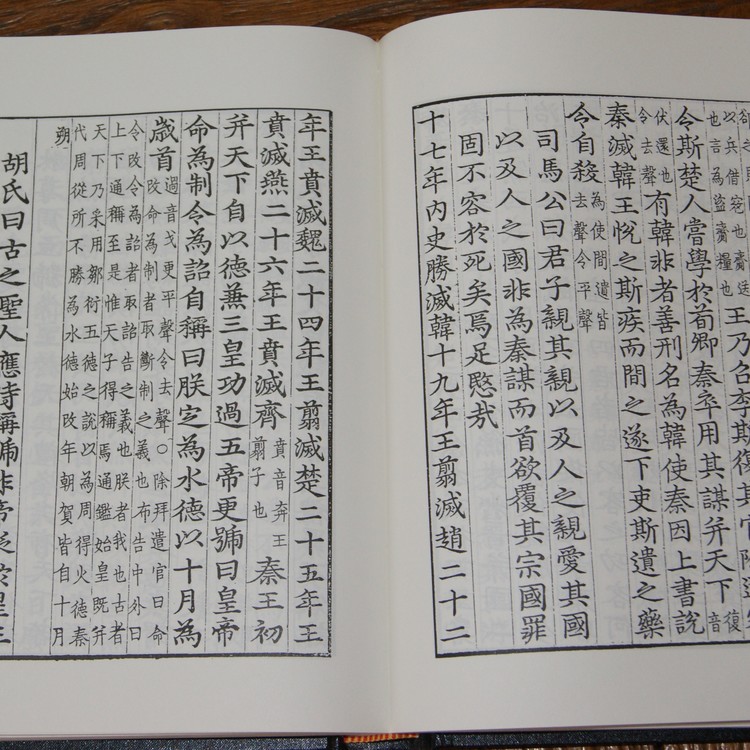 以兵借寇也齎送
也言為盜齎糧也
王乃召李斯復其官除逐
令斯楚人嘗學於荀卿秦卒用其謀并天下復音
伏還也
令去聲
有韓非者善刑名為韓使秦因上書說
秦滅韓王悅之斯疾而間之遂下吏斯遺之藥
令自殺為使間遺皆
去聲令平聲
司馬公曰君子親其親以及人之親愛其國
以及人之國非為秦謀而首欲覆其宗國罪
固不容於死矣焉足愍哉
十七年內史勝滅韓十九年王翦滅趙二十二
年王賁滅魏二十四年王翦滅楚二十五年王
賁滅燕二十六年王賁滅齊賁音奔王
翦子也
秦王初
并天下自以德兼三皇功過五帝更號曰皇帝
命為制令為詔自稱曰朕定為水德以十月為
歲首過音戈更平聲令去聲○除拜遣官曰命
改命為制者取斷制之義也布告中外曰
令改令為詔者取詔告之義也朕者我也古者
上下通稱至是惟天子得稱焉通鑑始皇既并
天下乃采用鄒衍五德之說以為周得火德秦
代周從所不勝為水德始改年朝賀皆自十月
朔
胡氏曰古之聖人應時稱號非帝貶於皇王